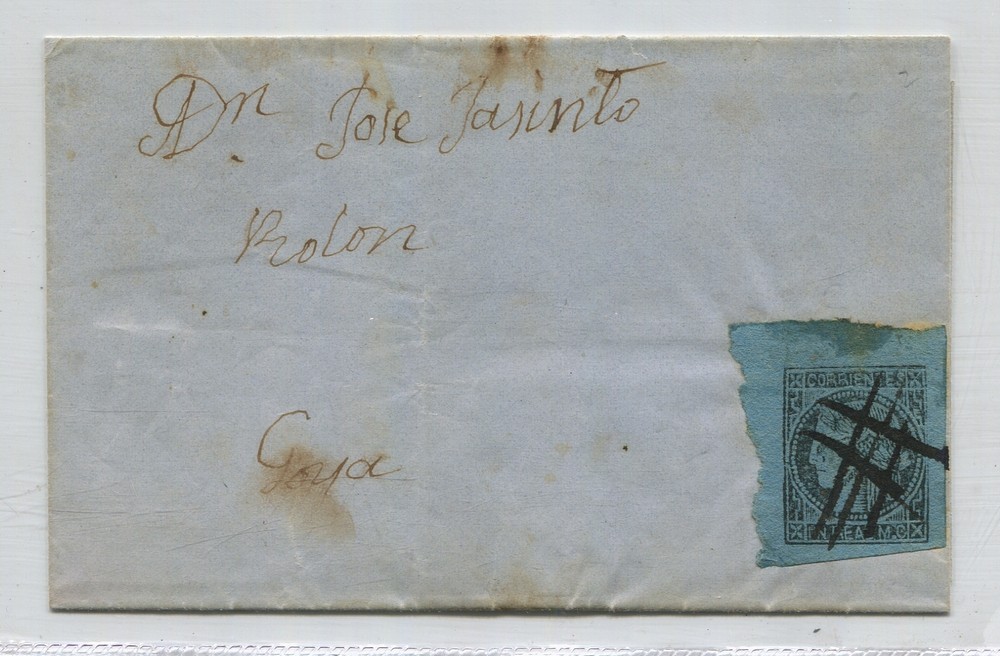 Dn Jose Jasinto
Rolon
Goya
CORRIENTES
M.C